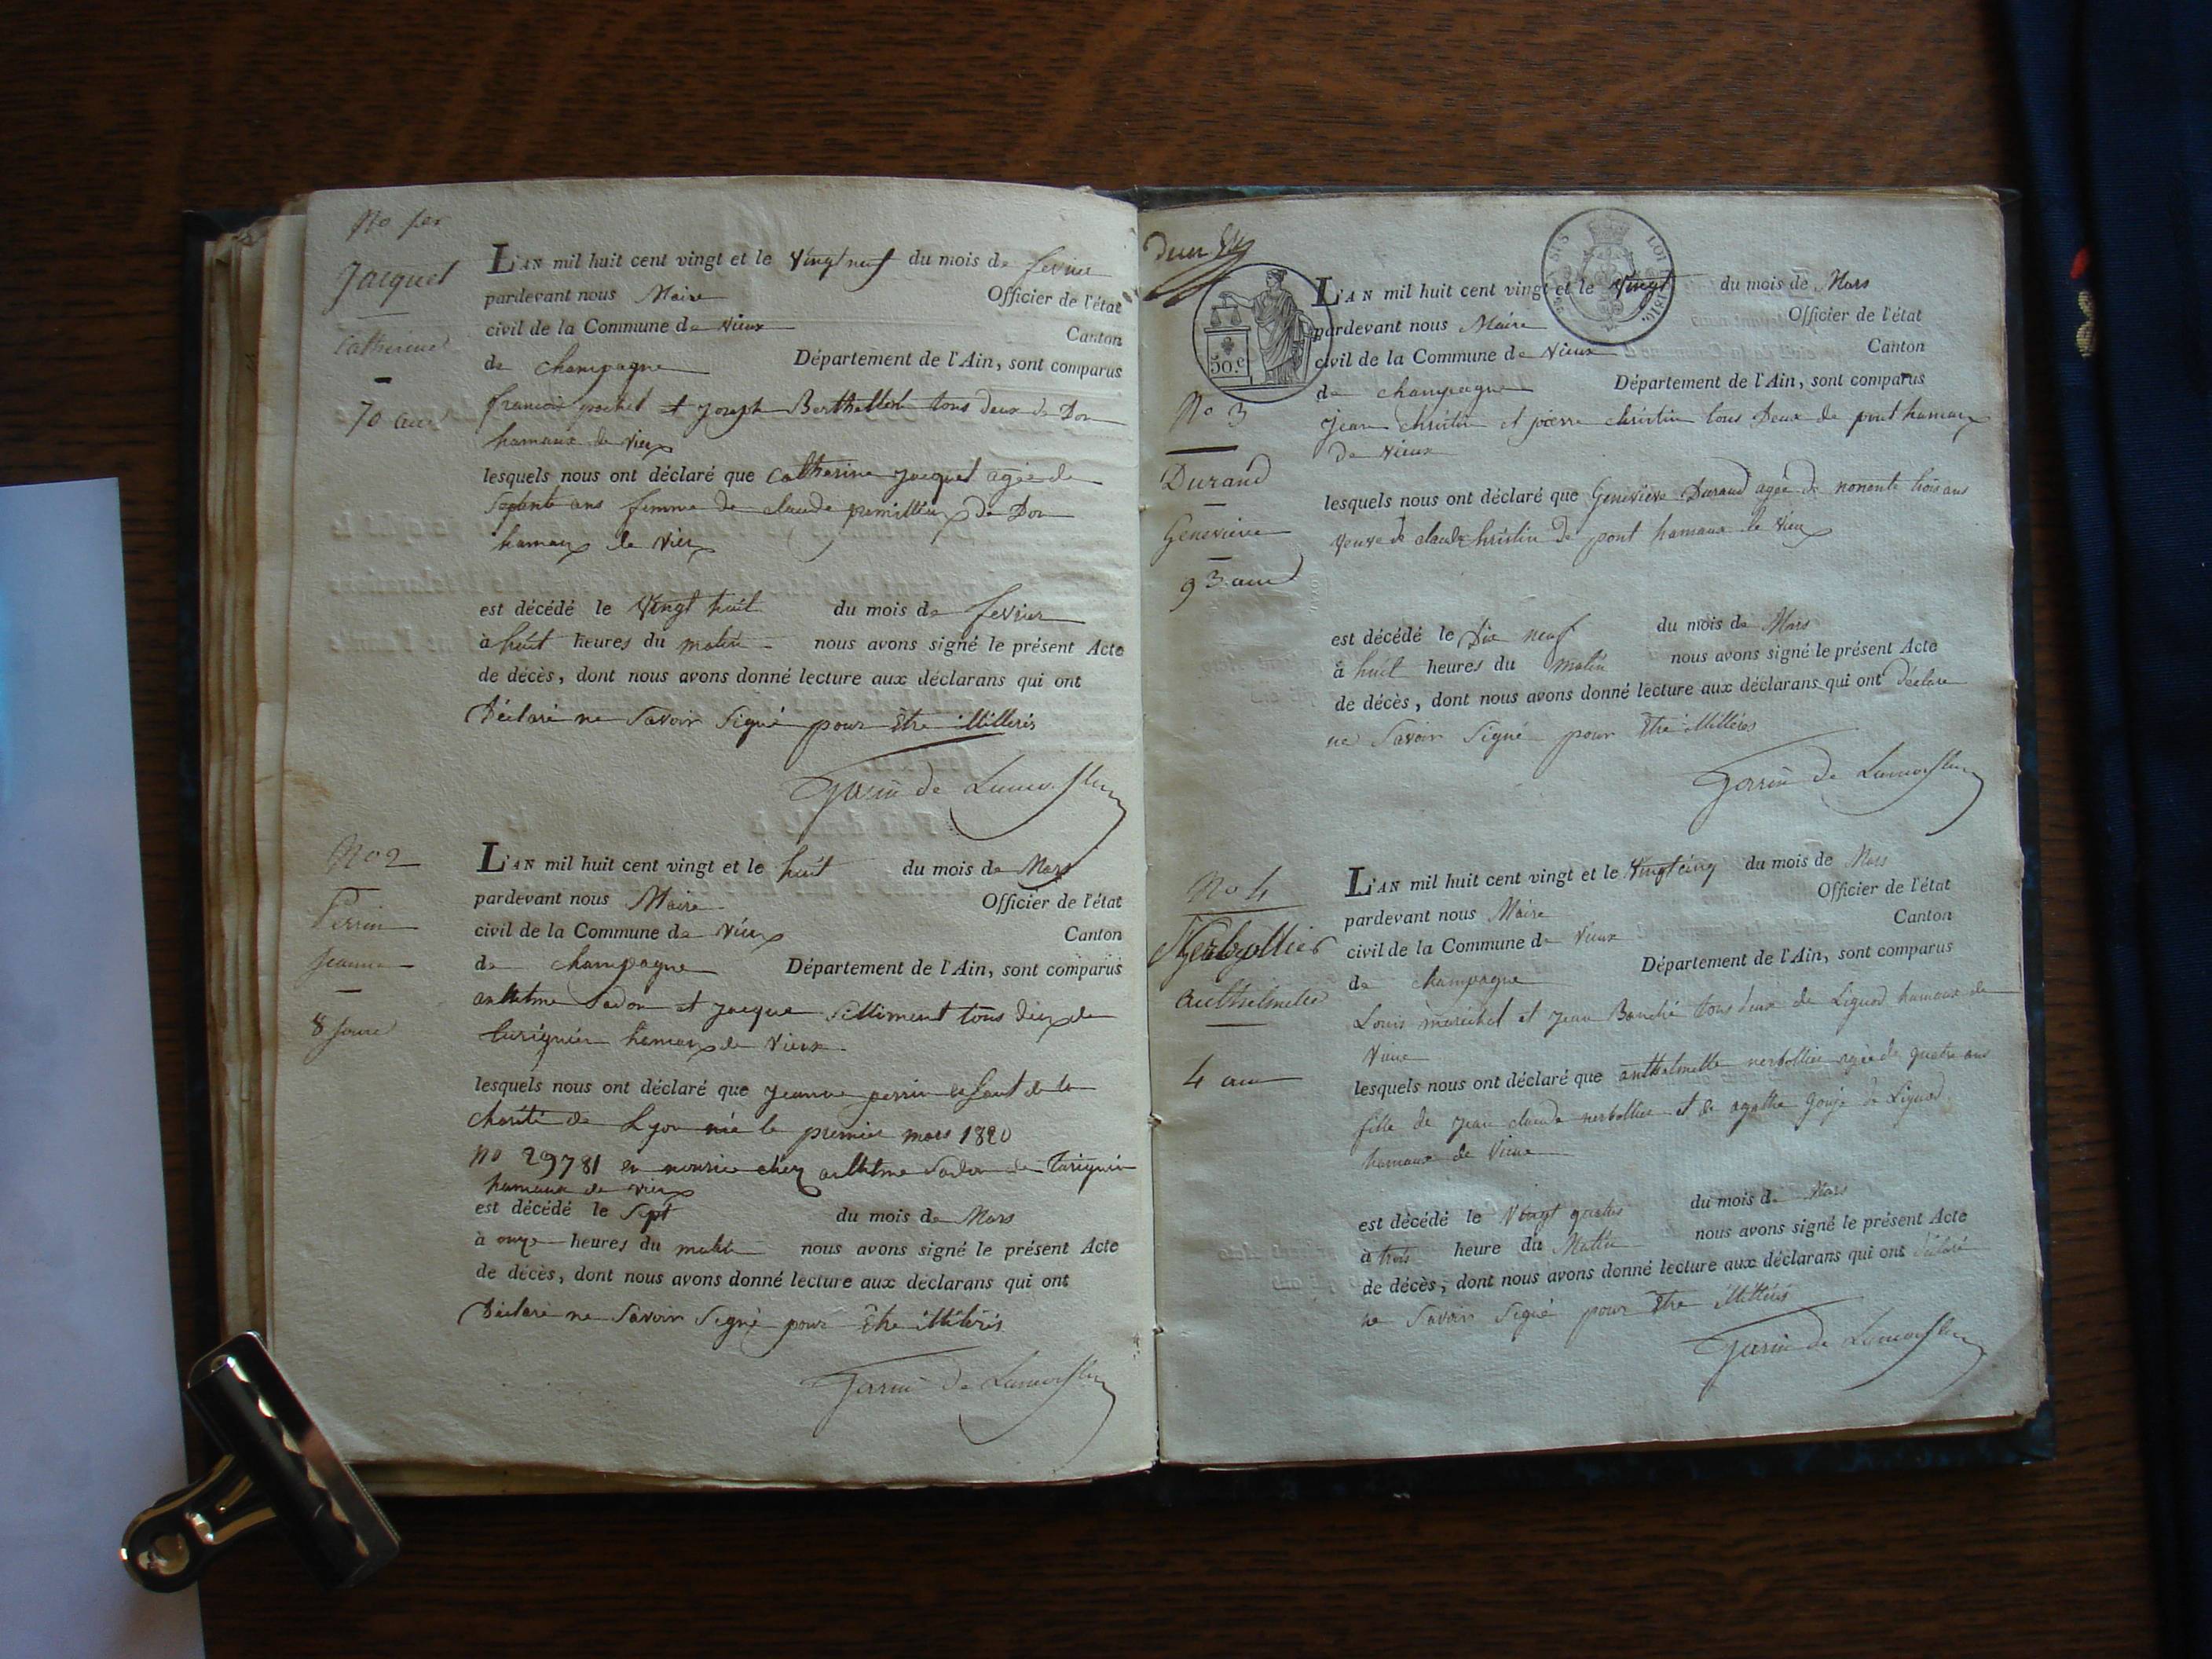 No 1er
Jacquet
Catherine
70 ans
L'AN mil huit cent vingt et le vingt neuf du mois de fevrier
pardevant nous Maire Officier de l'état
civil de la Commune de Vieux Canton
de champagne Département de l'Ain, sont comparus
francois pochet et joseph Berthellet tous deux de Don
hamaux de vieux
lesquels nous ont déclaré que Catherine jacquet agée de
Septente ans femme de claude premillieux de Don
hamaux de vieux
est décédé le Vingt huit du mois de fevrier
à huit heures du matin nous avons signé le présent Acte
de décès, dont nous avons donné lecture aux déclarans qui ont
Déclaré ne Savoir Signé pour Etre illitterés
No 2
Perrin
Jeanne
8 jours
L'AN mil huit cent vingt et le huit du mois de Mars
pardevant nous Maire Officier de l'état
civil de la Commune de Vieux Canton
de champagne Département de l'Ain, sont comparus
anthelme et jacque tous deux de
hamaux de Vieux
lesquels nous ont déclaré que jeanne perrin enfant de la
charité de Lyon née le premier mars 1820
No 29781 en nourice chez anthelme de
hamaux de vieux
est décédé le Sept du mois de Mars
à onze heures du matin nous avons signé le présent Acte
de décès, dont nous avons donné lecture aux déclarans qui ont
Déclaré ne Savoir Signé pour Etre illitterés
50.c
LOI 1816
L'AN mil huit cent vingt et le Vingt du mois de Mars
pardevant nous Maire Officier de l'état
civil de la Commune de Vieux Canton
de champagne Département de l'Ain, sont comparus
No 3
jean christin et pierre christin tous Deux de pont hamaux
de vieux
Durand
Genevieve
93 ans
lesquels nous ont déclaré que Genevieve Durand agée de nonente trois ans
veuve de claude christin de pont hamaux de vieux
est décédé le Dix neuf du mois de Mars
à huit heures du matin nous avons signé le présent Acte
de décès, dont nous avons donné lecture aux déclarans qui ont déclaré
ne Savoir Signé pour Etre illitterés
No 4
Nerbollier
anthelmette
4 ans
L'AN mil huit cent vingt et le Vingt cinq du mois de Mars
pardevant nous Maire Officier de l'état
civil de la Commune de Vieux Canton
de champagne Département de l'Ain, sont comparus
Louis marechal et jean tous deux de Lignod hamaux de
Vieux
lesquels nous ont déclaré que anthelmette nerbollier agée de quatre ans
fille de jean claude nerbollier et de agathe de Lignod
hamaux de Vieux
est décédé le Vingt quatre du mois de Mars
à trois heure du Matin nous avons signé le présent Acte
de décès, dont nous avons donné lecture aux déclarans qui ont déclaré
ne Savoir Signé pour Etre illitterés